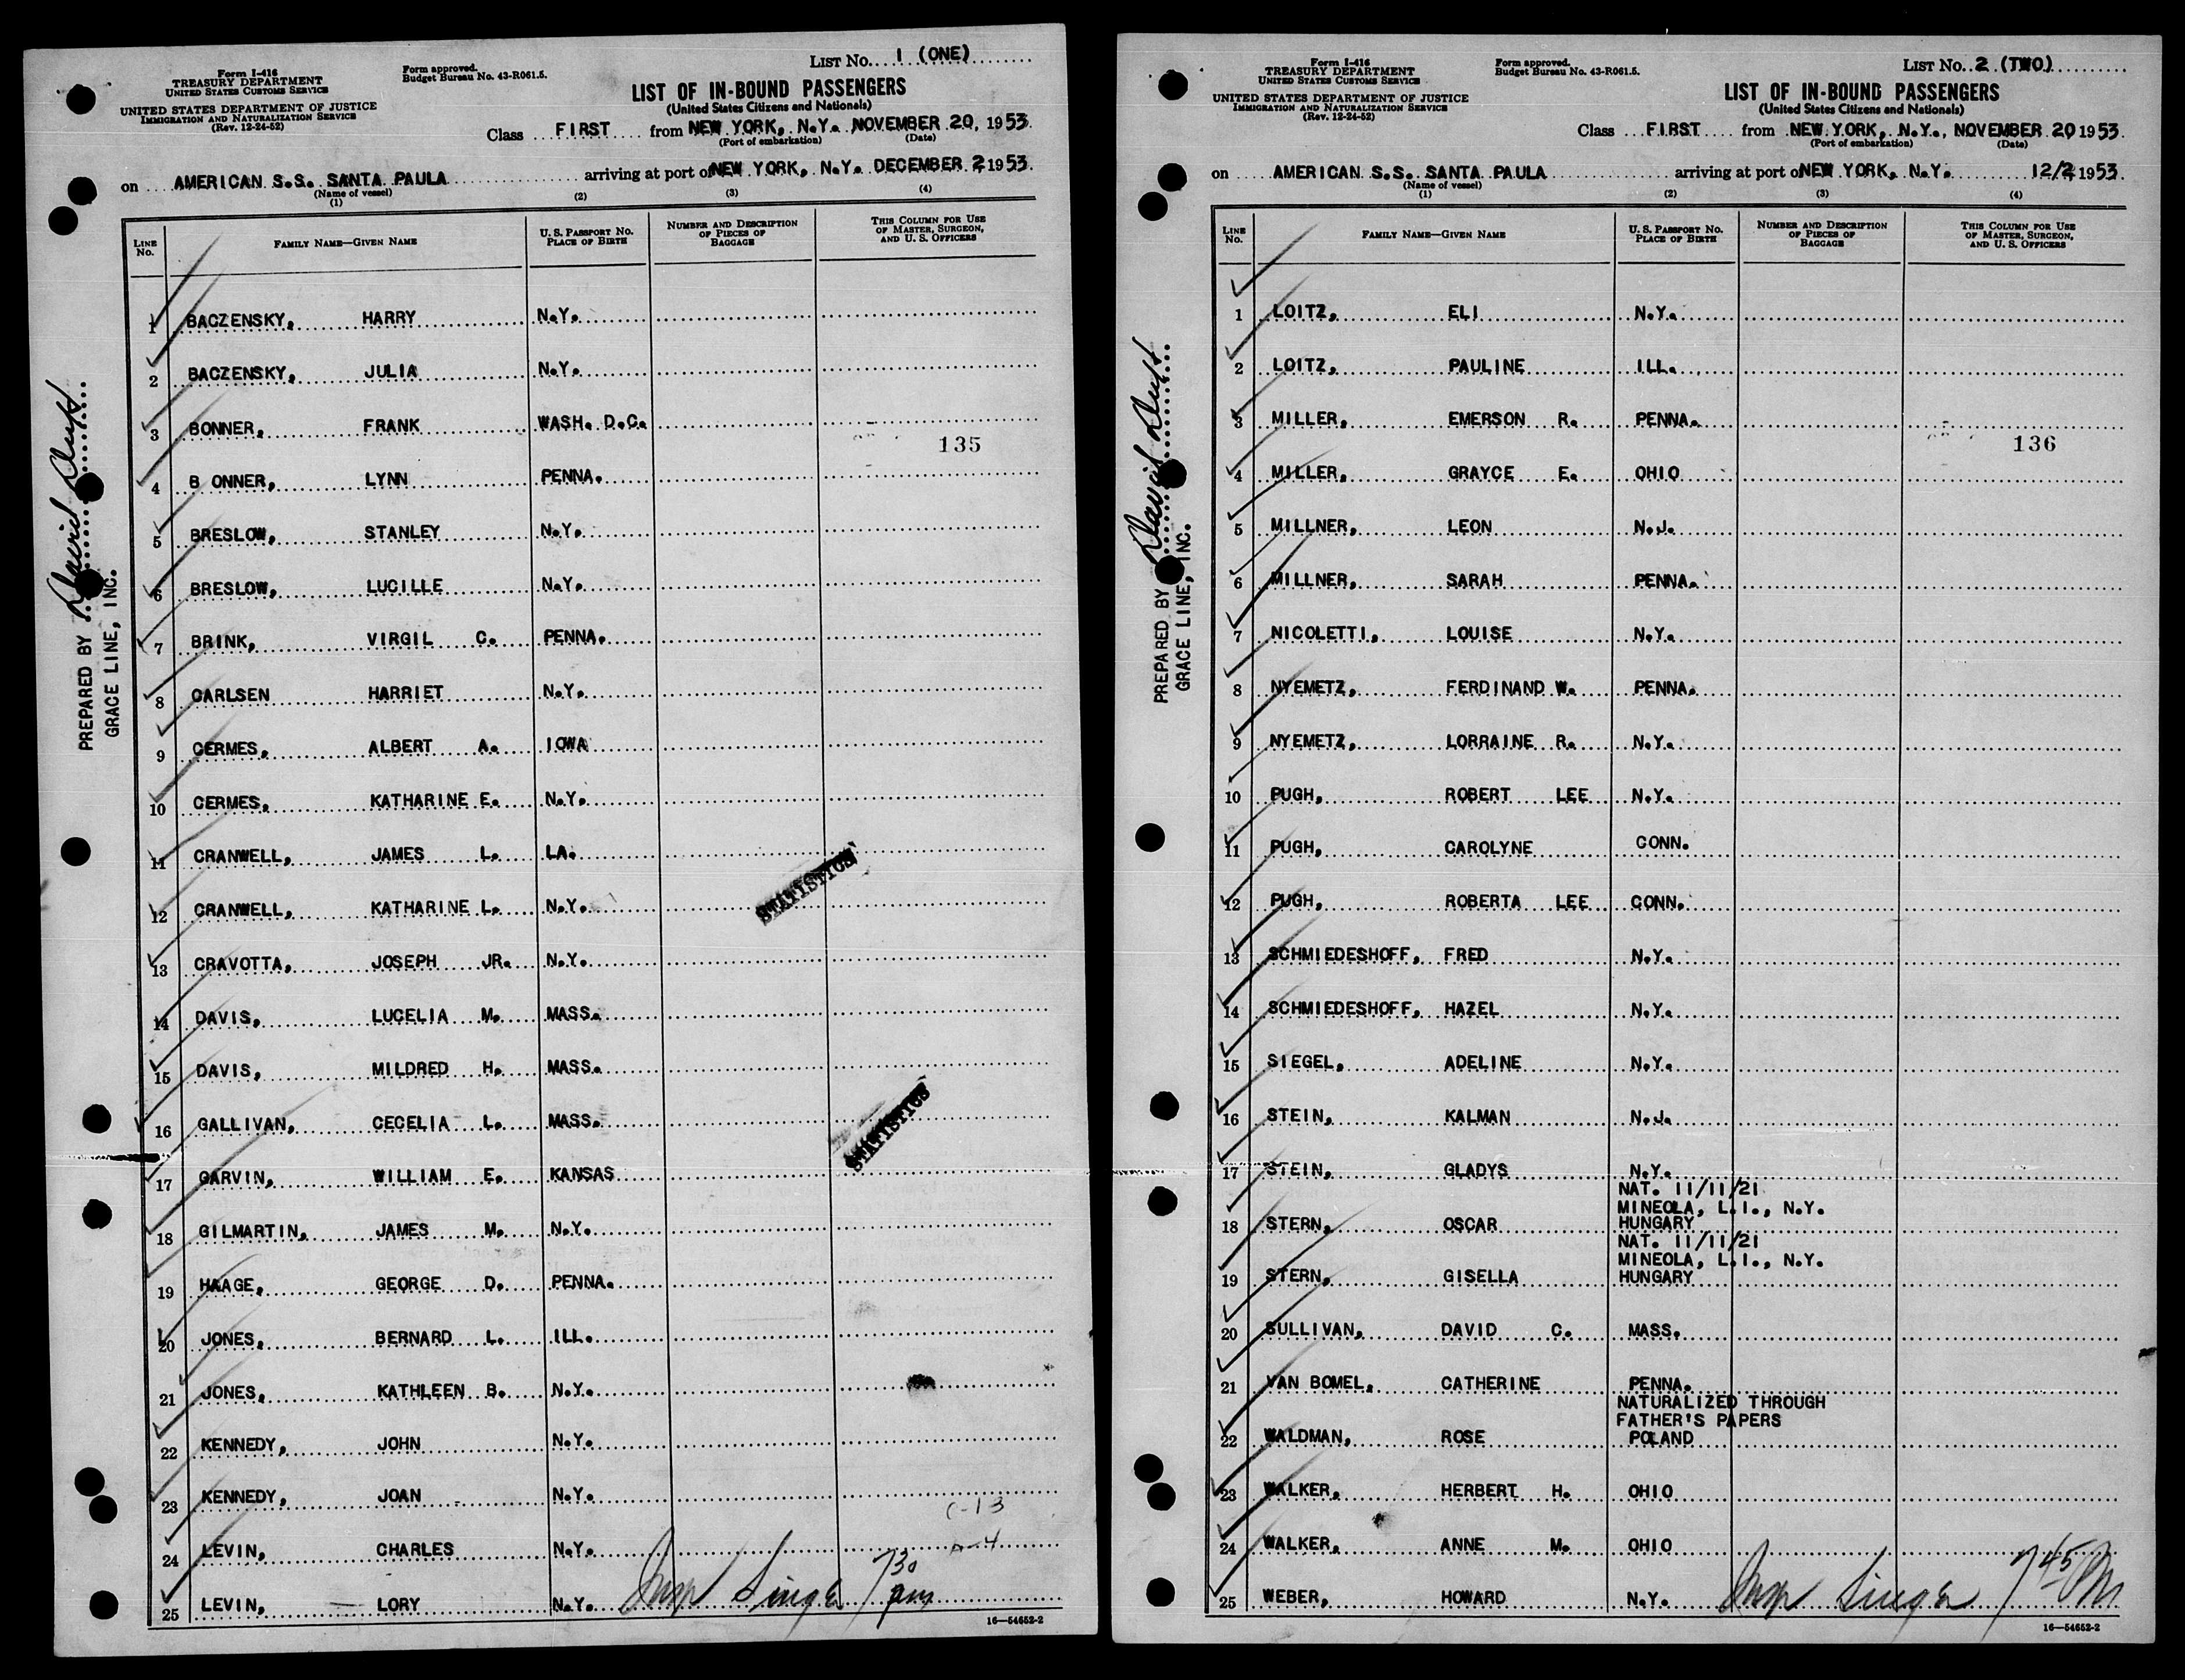 LIST No. 1 (ONE)
Form I-416
TREASURY DEPARTMENT
UNITED STATES CUSTOMS SERVICE
UNITED STATES DEPARTMENT OF JUSTICE
IMMIGRATION AND NATURALIZATION SERVICE
(Rev. 12-24-52)
Form approved.
Budget Bureau No. 43-R061.5.
LIST OF IN-BOUND PASSENGERS
(United States Citizens and Nationals)
Class FIRST from NEW YORK, N.Y. NOVEMBER 20, 1953.
(Port of embarkation) (Date)
on AMERICAN S.S. SANTA PAULA arriving at port of NEW YORK, N.Y. DECEMBER 2 1953.
(Name of vessel)
(1) (2) (3) (4)
LINE No. FAMILY NAME—GIVEN NAME U. S. PASSPORT No. PLACE OF BIRTH NUMBER AND DESCRIPTION OF PIECES OF BAGGAGE THIS COLUMN FOR USE OF MASTER, SURGEON, AND U. S. OFFICERS
1 BACZENSKY, HARRY N.Y.
2 BACZENSKY, JULIA N.Y.
3 BONNER, FRANK WASH. D.C.
135
4 B ONNER, LYNN PENNA.
5 BRESLOW, STANLEY N.Y.
6 BRESLOW, LUCILLE N.Y.
7 BRINK, VIRGIL C. PENNA.
8 CARLSEN HARRIET N.Y.
9 CERMES, ALBERT A. IOWA
10 CERMES, KATHARINE E. N.Y.
11 CRANWELL, JAMES L. LA.
STATISTICS
12 CRANWELL, KATHARINE L. N.Y.
13 CRAVOTTA, JOSEPH JR. N.Y.
14 DAVIS, LUCELIA M. MASS.
15 DAVIS, MILDRED H. MASS.
16 GALLIVAN, CECELIA L. MASS.
STATISTICS
17 GARVIN, WILLIAM E. KANSAS
18 GILMARTIN, JAMES M. N.Y.
19 HAAGE, GEORGE D. PENNA.
20 JONES, BERNARD L. ILL.
21 JONES, KATHLEEN B. N.Y.
22 KENNEDY, JOHN N.Y.
23 KENNEDY, JOAN N.Y.
C-13
24 LEVIN, CHARLES N.Y.
25 LEVIN, LORY N.Y.
Singer 730 pm
16—54652-2
PREPARED BY David
GRACE LINE, INC.
LIST No. 2 (TWO)
Form I-416
TREASURY DEPARTMENT
UNITED STATES CUSTOMS SERVICE
UNITED STATES DEPARTMENT OF JUSTICE
IMMIGRATION AND NATURALIZATION SERVICE
(Rev. 12-24-52)
Form approved.
Budget Bureau No. 43-R061.5.
LIST OF IN-BOUND PASSENGERS
(United States Citizens and Nationals)
Class FIRST from NEW YORK, N.Y., NOVEMBER 20 1953.
(Port of embarkation) (Date)
on AMERICAN S.S. SANTA PAULA arriving at port of NEW YORK, N.Y. 12/2 1953.
(Name of vessel)
(1) (2) (3) (4)
LINE No. FAMILY NAME—GIVEN NAME U. S. PASSPORT No. PLACE OF BIRTH NUMBER AND DESCRIPTION OF PIECES OF BAGGAGE THIS COLUMN FOR USE OF MASTER, SURGEON, AND U. S. OFFICERS
1 LOITZ, ELI N.Y.
2 LOITZ, PAULINE ILL.
3 MILLER, EMERSON R. PENNA.
136
4 MILLER, GRAYCE E. OHIO
5 MILLNER, LEON N.J.
6 MILLNER, SARAH PENNA.
7 NICOLETTI, LOUISE N.Y.
8 NYEMETZ, FERDINAND W. PENNA.
9 NYEMETZ, LORRAINE R. N.Y.
10 PUGH, ROBERT LEE N.Y.
11 PUGH, CAROLYNE CONN.
12 PUGH, ROBERTA LEE CONN.
13 SCHMIEDESHOFF, FRED N.Y.
14 SCHMIEDESHOFF, HAZEL N.Y.
15 SIEGEL, ADELINE N.Y.
16 STEIN, KALMAN N.J.
17 STEIN, GLADYS N.Y.
NAT. 11/11/21
MINEOLA, L.I., N.Y.
18 STERN, OSCAR HUNGARY
NAT. 11/11/21
MINEOLA, L.I., N.Y.
19 STERN, GISELLA HUNGARY
20 SULLIVAN, DAVID C. MASS.
21 VAN BOMEL, CATHERINE PENNA.
NATURALIZED THROUGH
FATHER'S PAPERS
22 WALDMAN, ROSE POLAND
23 WALKER, HERBERT H. OHIO
24 WALKER, ANNE M. OHIO
25 WEBER, HOWARD N.Y.
Singer 745 PM
16—54652-2
PREPARED BY David
GRACE LINE, INC.